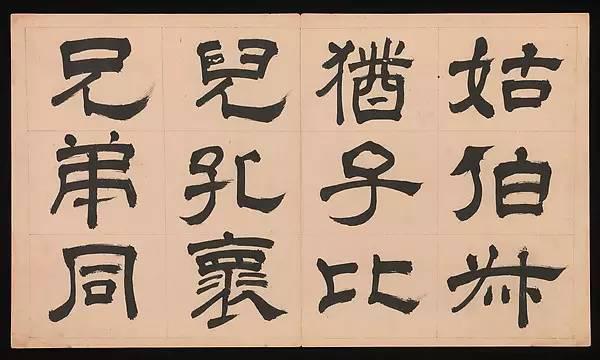 姑伯叔
猶子比
兒孔褱
兄弟同